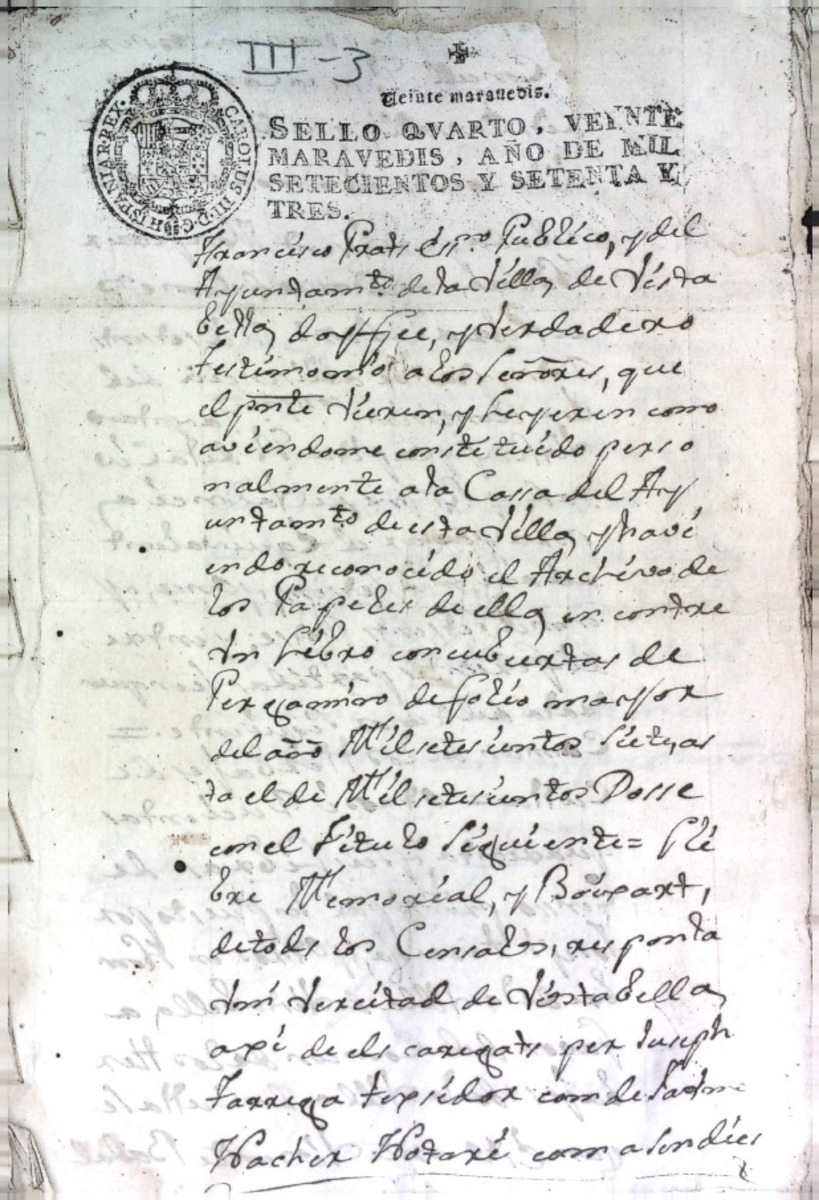 III-3
Veinte maravedis.
SELLO QVARTO, VEYNTE
MARAVEDIS, AÑO DE MIL
SETECIENTOS Y SETENTA Y
TRES.
CAROLUS III·D·G· HISPANIAR·REX·
Francisco Prats Es.no Publico, y del
Ayuntam.to de la Villa de Vista
bella doy ffee, y verdadero
testimonio a los Señores, que
el pnte vieren, y leyeren como
aviendome constituido perso
nalmente a la Cassa del Ay
untam.to de esta Villa y havi
endo reconocido el Archivo de
los Papeles de ella encontre
un Libro con cubiertas de
Pergamino de folio mayor
del año Mil setesientos
ta el de Mil setesientos Dosse
con el Titulo siguiente= Lli
bre Memorial, y
de tots los Censals, respon la
Universitad de Vistabella
axi de els carregats per Juseph
Tarrega texidor com de Jaume
Nacher Notari com a Sindics